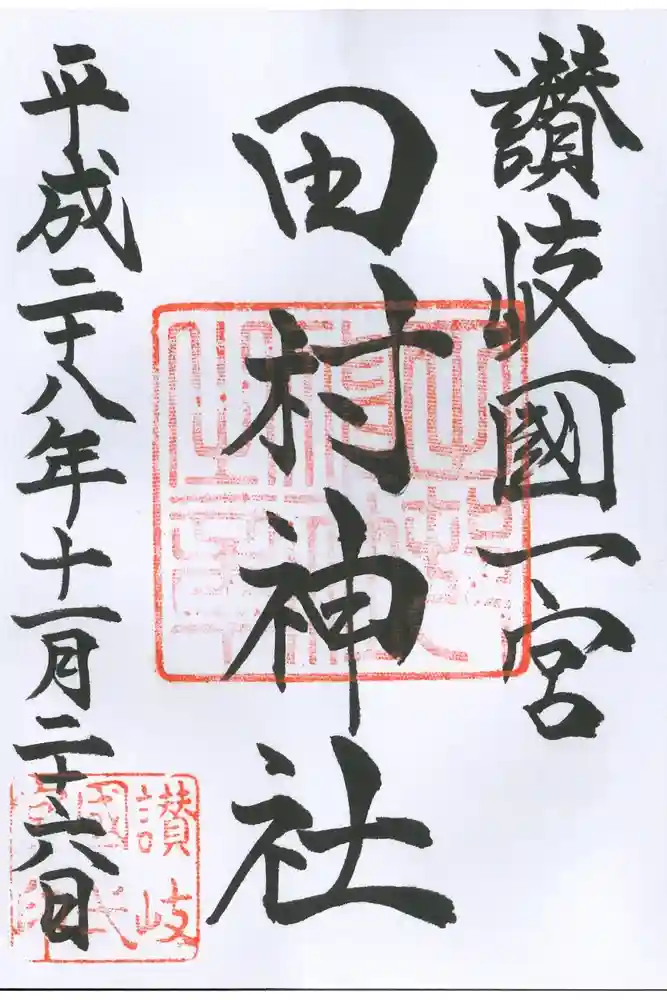 讃岐國一宮
田村神社
平成二十八年十一月二十六日
讃岐